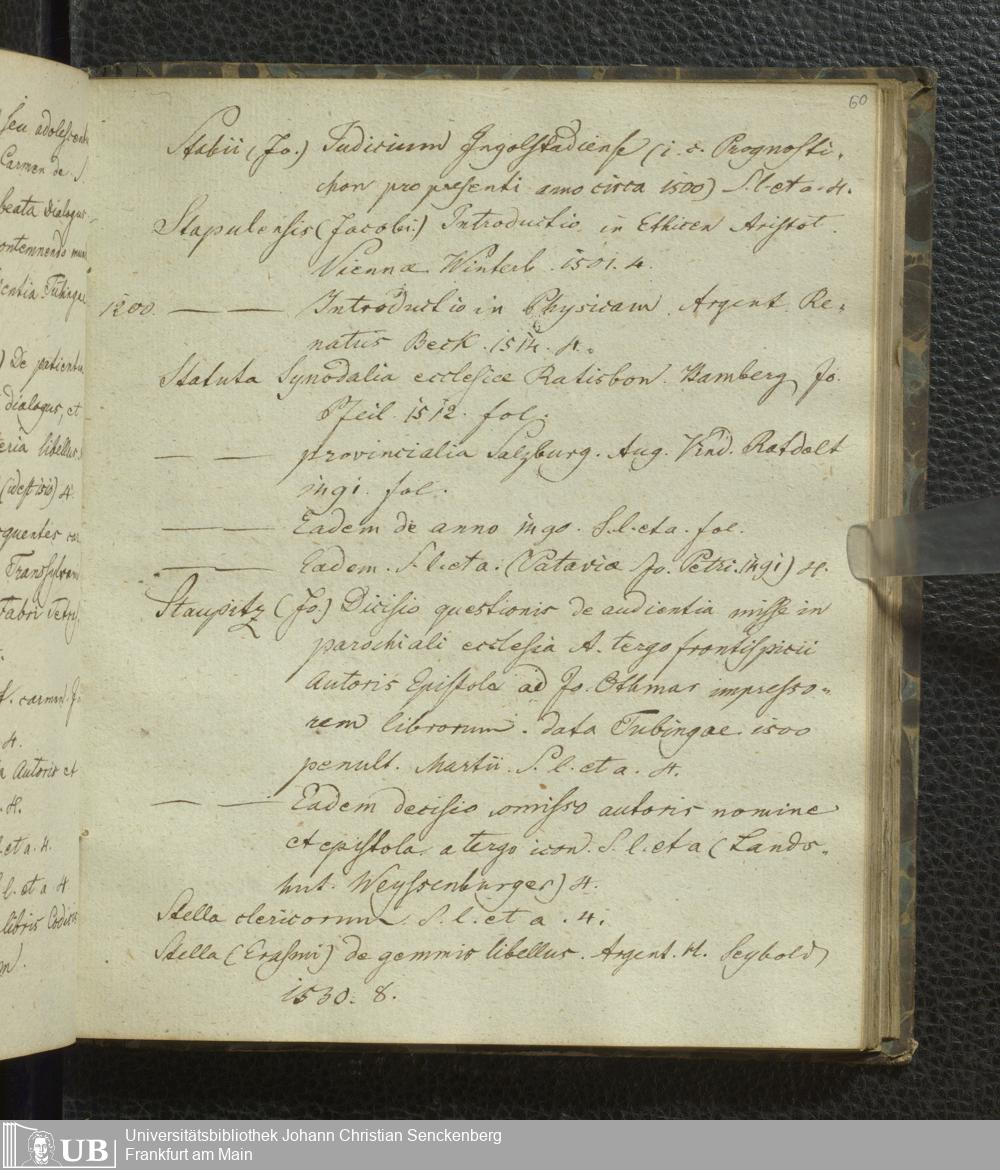 seu adolescent
Carmen de S.
beata Dialogus
contemnendo mun
entia Tubingae
) De patientia
dialogus, et
eria libellus.
(idest 1510) 4.
quentes
Transylvan
Fabri
f. carmen.
4.
Autoris et
. 4.
l. et a. 4.
l. et a 4
libris
60
Stabii (Jo.) Iudicium Ingolstadiense (i. e. Prognosti-
chon pro presenti anno circa 1500) S. l. et a. 4.
Stapulensis (Jacobi) Introductio in Ethicen Aristot.
Viennae Winterb. 1501. 4.
1200. — — Introductio in Physicam. Argent. Re-
natus Beck. 1514. 4.
Statuta Synodalia ecclesiae Ratisbon. Bamberg, Jo.
Pfeil. 1512. fol.
— — provincialia Salzburg. Aug. Ratdolt
1491. fol.
— — Eadem de anno 1490. S. l. et a. fol.
— — Eadem. S. l. et a. (Pataviae Jo. Petri. 1491) 4.
Staupitz (Jo.) Dicisio questionis de audientia misse in
parochiali ecclesia A. tergo frontispicii
Autoris Epistola ad Jo. Othmar impresso-
rem librorum. data Tubingae. 1500
penult. Martii. S. l. et a. 4.
— — Eadem decisio omisso autoris nomine
et epistola. a tergo icon. S. l. et a (Lands-
hut. Weyssenburger) 4.
Stella clericorum. S. l. et a. 4.
Stella (Erasmi) de gemmis libellus. Argent. H. Seybold
1530. 8.
UB Universitätsbibliothek Johann Christian Senckenberg
Frankfurt am Main